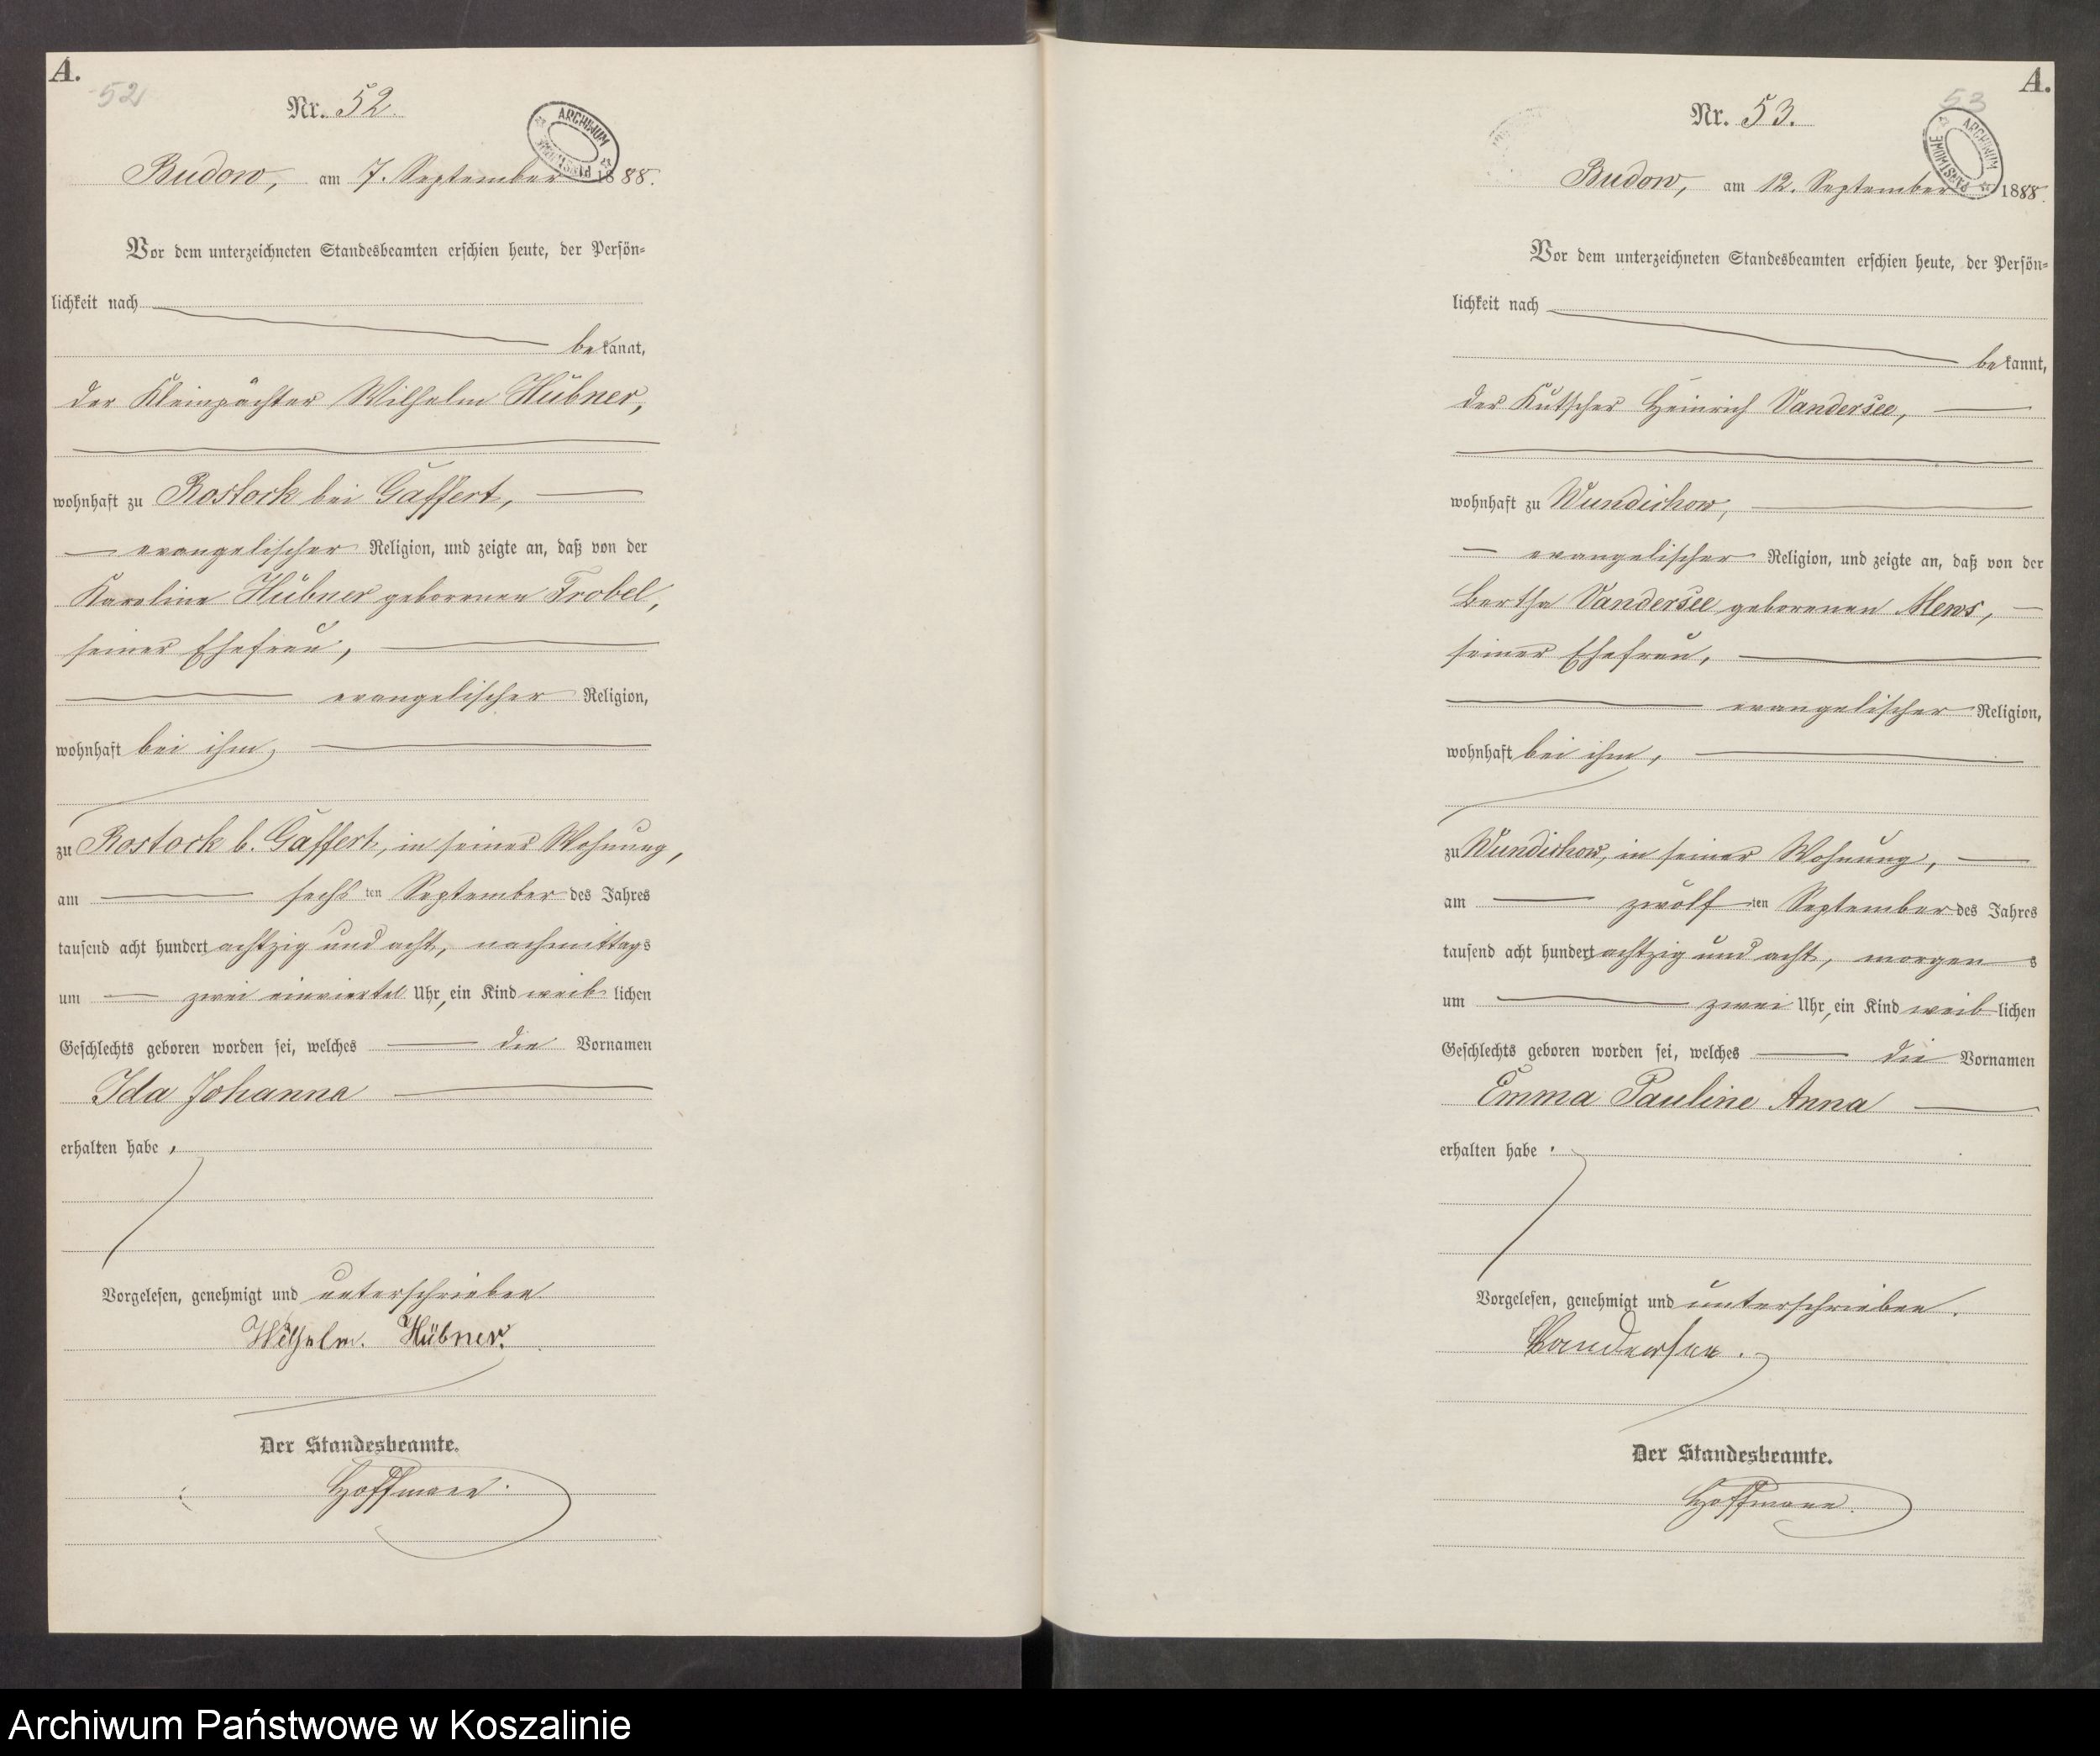 A.
52
Nr. 52.
ARCHIWUM PAŃSTWOWE
Budow, am 7. September 1888.
Vor dem unterzeichneten Standesbeamten erschien heute, der Persön-
lichkeit nach
bekannt,
der Kleinpächter Wilhelm Hübner,
wohnhaft zu Rostock bei Gaffert,
evangelischer Religion, und zeigte an, daß von der
Karoline Hübner geborenen Trobel,
seiner Ehefrau,
evangelischer Religion,
wohnhaft bei ihm,
zu Rostock b. Gaffert, in seiner Wohnung,
am sechs ten September des Jahres
tausend acht hundert achtzig und acht, nachmittags
um zwei einviertel Uhr, ein Kind weiblichen
Geschlechts geboren worden sei, welches die Vornamen
Ida Johanna
erhalten habe.
Vorgelesen, genehmigt und unterschrieben
Wilhelm. Hübner.
Der Standesbeamte.
Hoffmann.
A.
53
Nr. 53.
ARCHIWUM PAŃSTWOWE
Budow, am 12. September 1888.
Vor dem unterzeichneten Standesbeamten erschien heute, der Persön-
lichkeit nach
bekannt,
der Kutscher Heinrich Vandersee,
wohnhaft zu Wundichow,
evangelischer Religion, und zeigte an, daß von der
Bertha Vandersee geborenen Mews,
seiner Ehefrau,
evangelischer Religion,
wohnhaft bei ihm,
zu Wundichow, in seiner Wohnung,
am zwölf ten September des Jahres
tausend acht hundert achtzig und acht, morgens
um zwei Uhr, ein Kind weiblichen
Geschlechts geboren worden sei, welches die Vornamen
Emma Pauline Anna
erhalten habe.
Vorgelesen, genehmigt und unterschrieben.
Vandersee.
Der Standesbeamte.
Hoffmann.
Archiwum Państwowe w Koszalinie